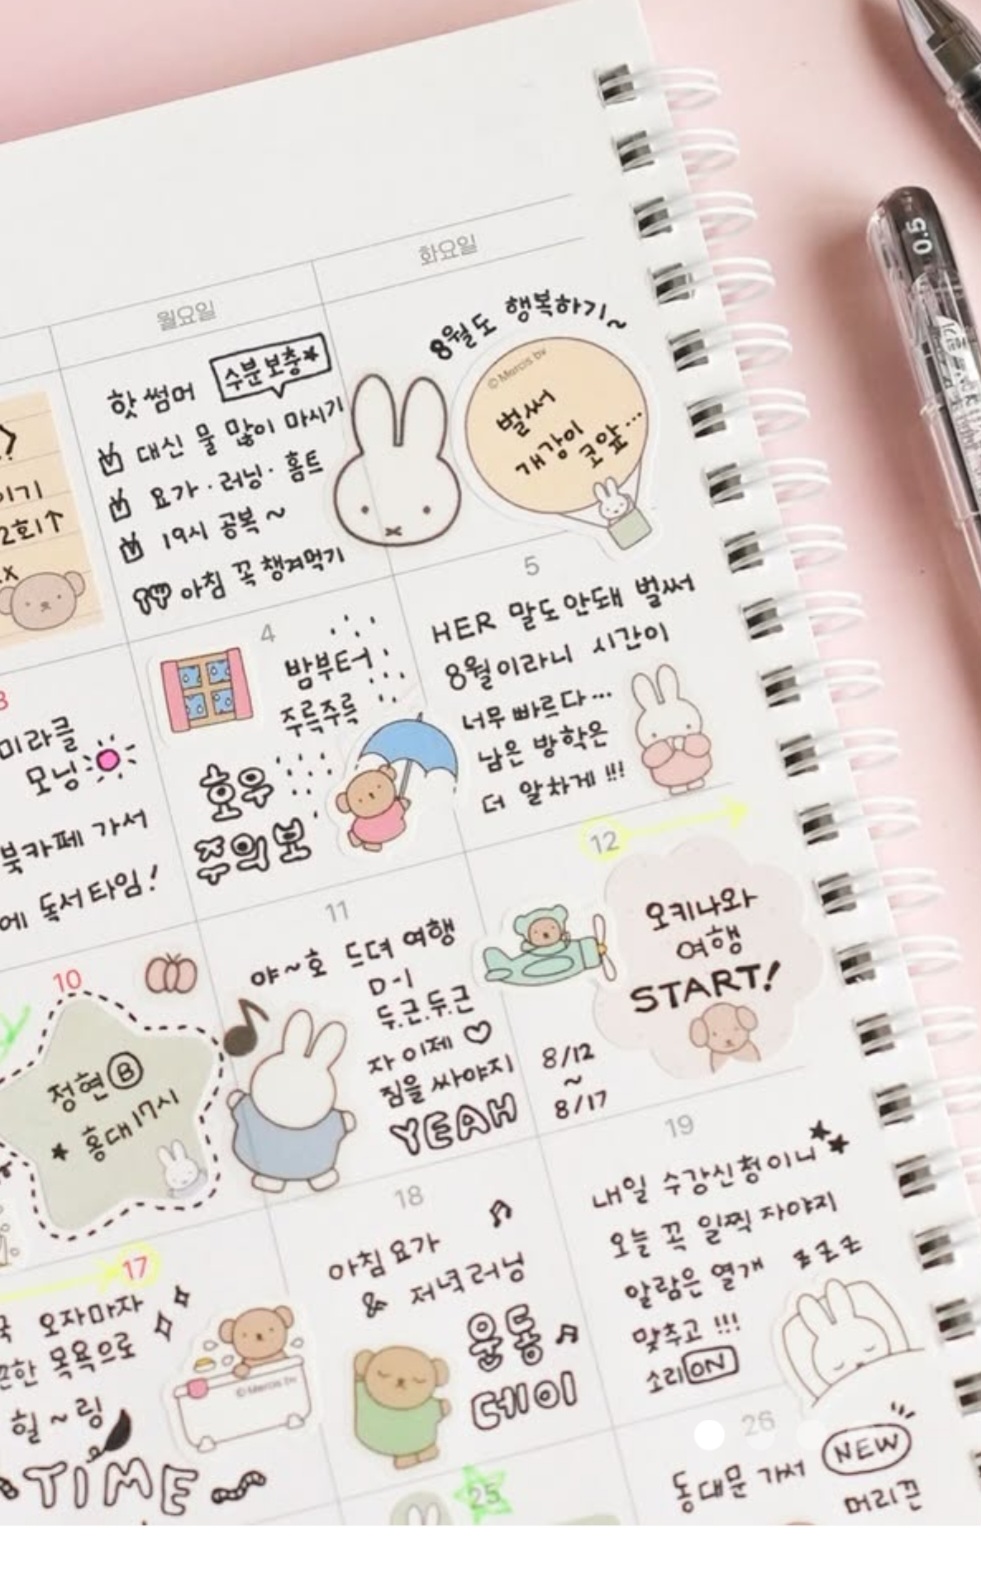 화요일
월요일
8월도 행복하기~
© Mercis bv
벌써
개강이
코앞...
핫 썸머
수분보충
대신 물 많이 마시기
요가 · 러닝 · 홈트
19시 공복 ~
아침 꼭 챙겨먹기
?
이기
2회↑
x
3
미라클
모닝
북카페 가서
에 독서타임!
4
밤부터
주륵주륵
호우
주의보
5
HER 말도안돼 벌써
8월이라니 시간이
너무 빠르다...
남은 방학은
더 알차게!!!
10
정현 B
홍대 17시
11
야~호 드뎌 여행
D-1
두근.두근
자 이제 ♡
짐을 싸야지
YEAH
12
오키나와
여행
START!
8/12
~
8/17
17
국 오자마자
끈한 목욕으로
힐~링
TIME
© Mercis bv
18
아침요가
& 저녁러닝
운동
데이
19
내일 수강신청이니
오늘 꼭 일찍 자야지
알람은 열개 zzz
맞추고!!!
소리 ON
25
26
동대문 가서 NEW
머리끈
0.5